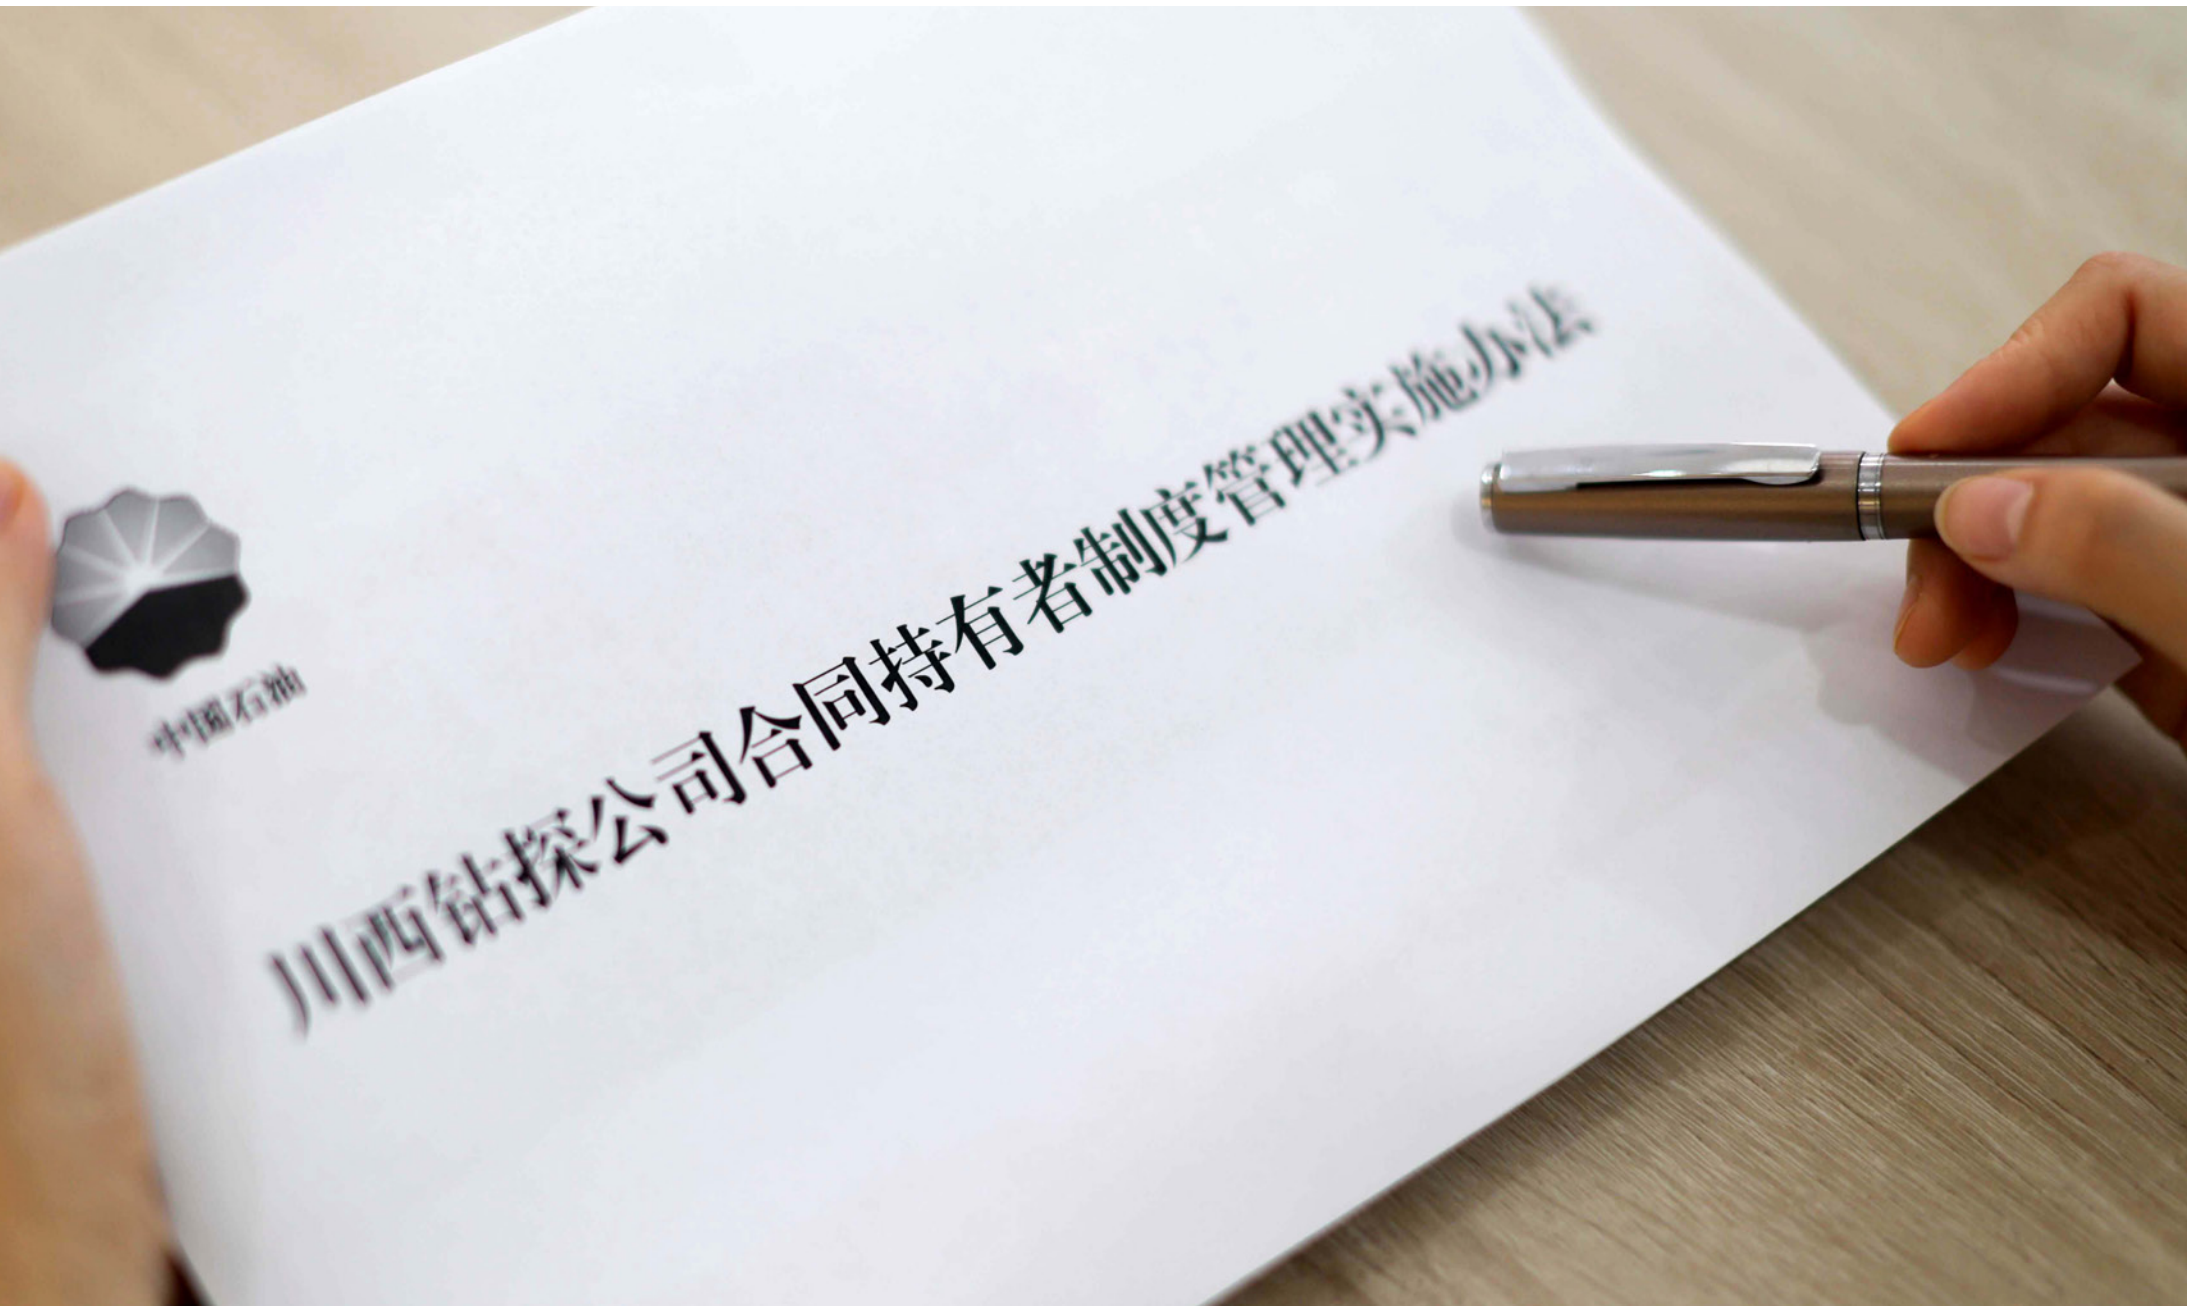 中国石油
川西钻探公司合同持有者制度管理实施办法